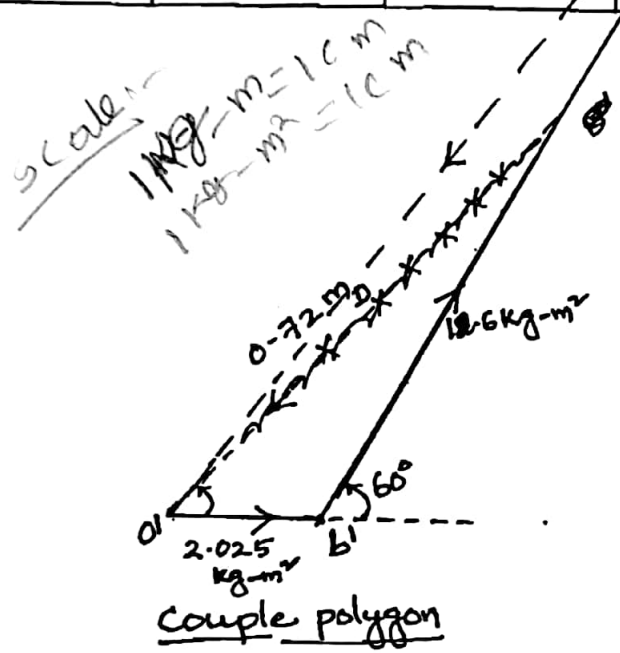 Scale:-
1 Kg-m = 1 cm
1 Kg-m² = 1 cm
0.72 m_D
12.6 kg-m²
60°
O'
2.025
kg-m²
b'
Couple polygon